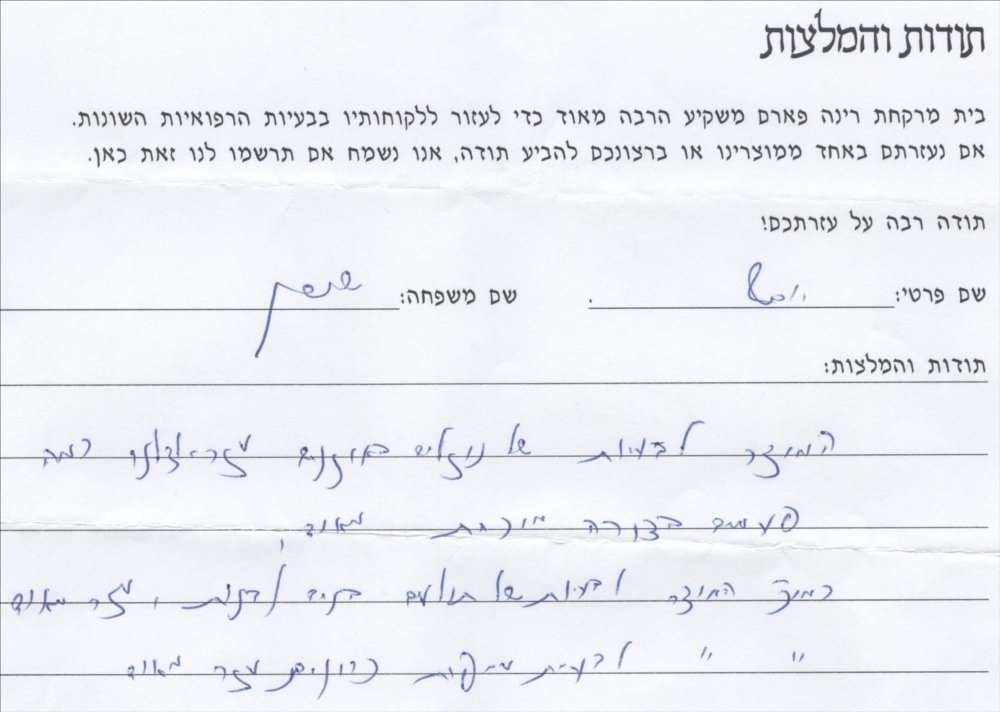 תודות והמלצות
בית מרקחת רינה פארם משקיע הרבה מאוד כדי לעזור ללקוחותיו בבעיות הרפואיות השונות.
אם נעזרתם באחד ממוצרינו או ברצונכם להביע תודה, אנו נשמח אם תרשמו לנו זאת כאן.
תודה רבה על עזרתכם!
שם פרטי: שם משפחה:
תודות והמלצות:
המוצר לבעיות של נוזלים באוזנים עזר לנו כמה
פעמים בצורה מוכחת מאוד,
המוצר לבעיות של תולעים לבנות, עזר מאוד
" " לבעיות עזר מאוד